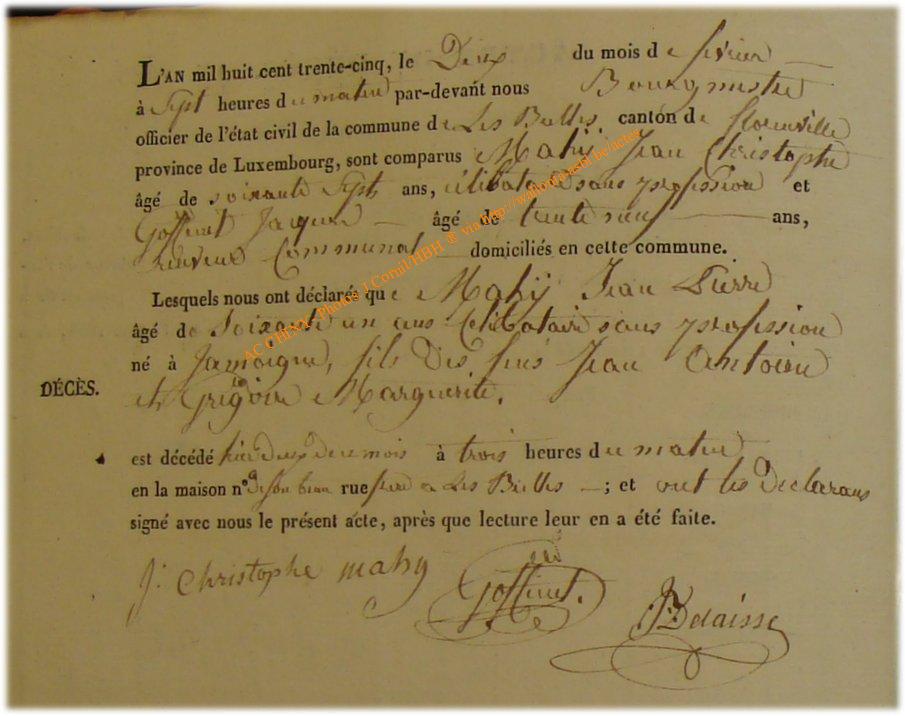 L'AN mil huit cent trente-cinq, le Deux du mois de fevrier
à Sept heures du matin par-devant nous Bourgmestre
officier de l'état civil de la commune de Les Bulles, canton de florenville
province de Luxembourg, sont comparus Mahÿ Jean Christophe
âgé de soixante Sept ans, célibataire sans profession et
Goffinet Jacques âgé de trente neuf ans,
receveur Communal domiciliés en cette commune.
Lesquels nous ont déclaré que Mahÿ Jean Pierre
âgé de Soixante un ans Celibataire sans profession
né à Jamoigne, fils des feus Jean Antoine
DÉCÈS.
et Grégoire Marguerite.
est décédé deux mois à trois heures du matin
en la maison n° de son beau rue frere a Les Bulles ; et ont les declarans
signé avec nous le présent acte, après que lecture leur en a été faite.
J: Christophe mahy Goffinet. Delaisse
AC CHINY Photos J Cornil/HBH ® via http://wallonia.asbl.be/actes